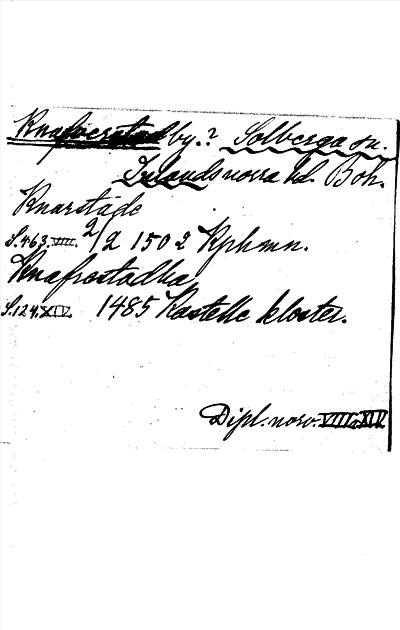 Knaverstad by.? Solberga sn.
Inlands norra hd. Boh.
Knarstade
S. 463. VIII. 2/2 1502 Kphmn.
Knafrestadha
S. 124. XIV. 1485 Kastelle kloster.
Dipl. norv. VIII. XIV